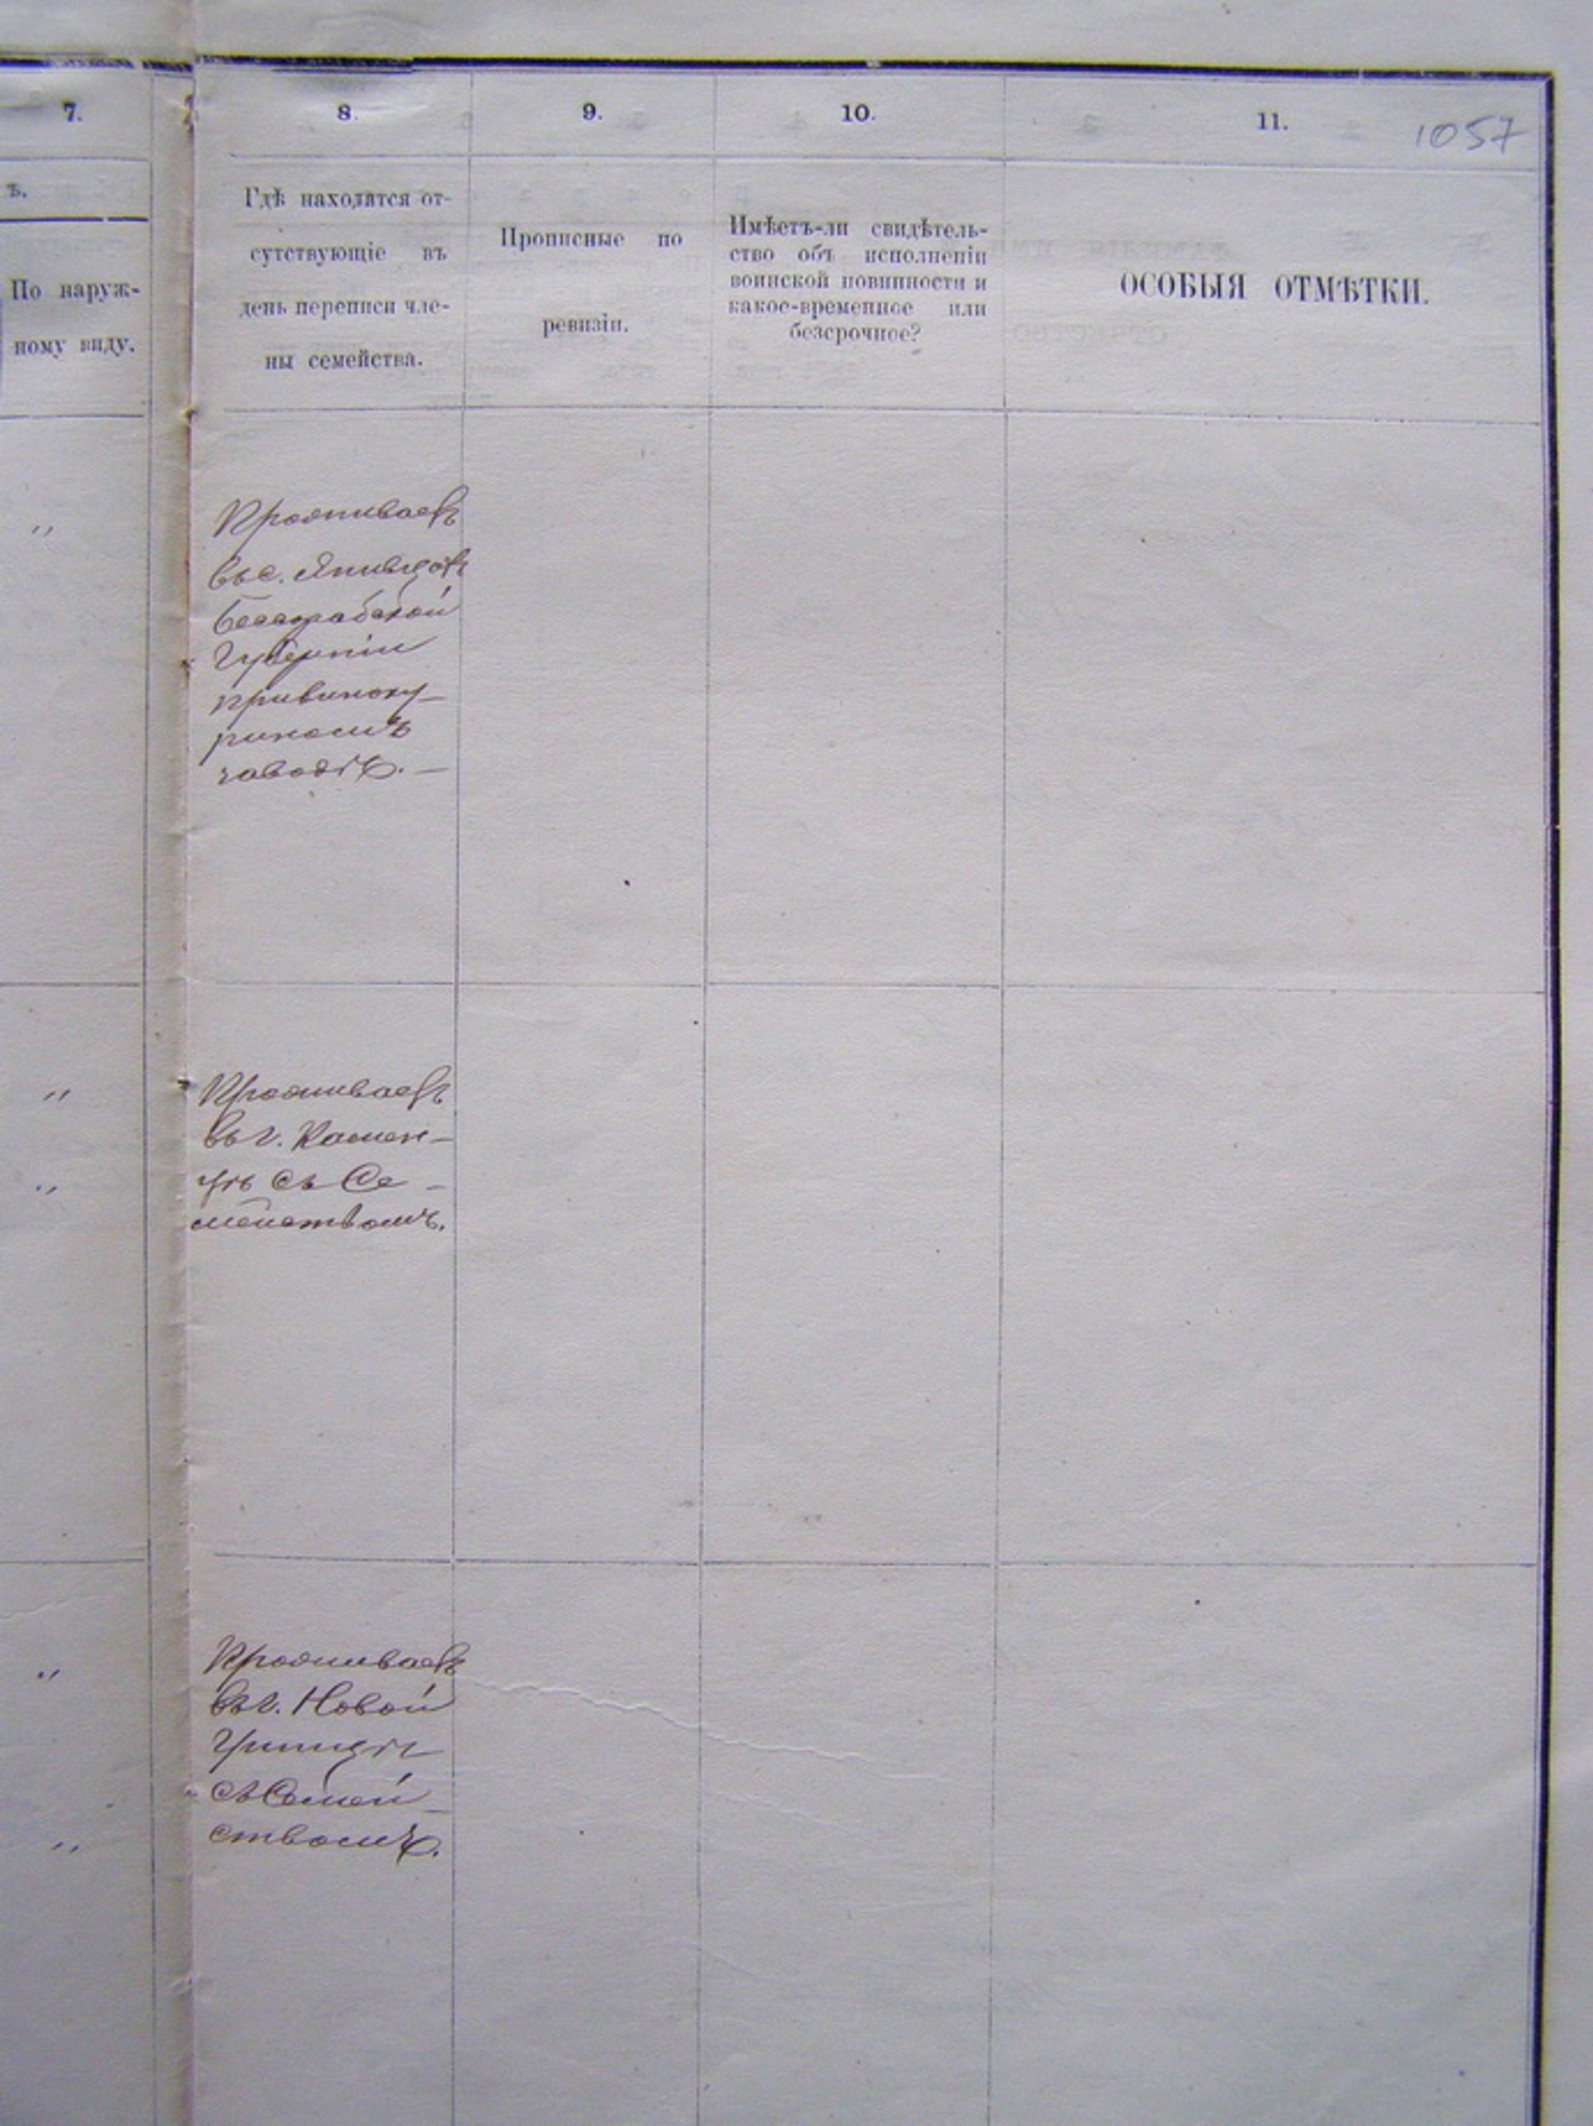 7.
8.
9.
10.
11.
1057
ъ.
По наруж-
ному виду.
Гдѣ находятся от-
сутствующіе въ
день переписи чле-
ны семейства.
Прописные по
ревизіи.
Имѣетъ-ли свидѣтель-
ство объ исполненіи
воинской повинности и
какое-временное или
безсрочное?
ОСОБЫЯ ОТМѢТКИ.
"
Проживаетъ
въ с.
Бессарабской
Губерніи
при виноку-
ренномъ
заводѣ. —
"
"
Проживаетъ
въ г. Камен-
цѣ съ Се-
мействомъ.
"
"
Проживаетъ
въ г. Новой
Ушицѣ
съ Семей-
ствомъ.